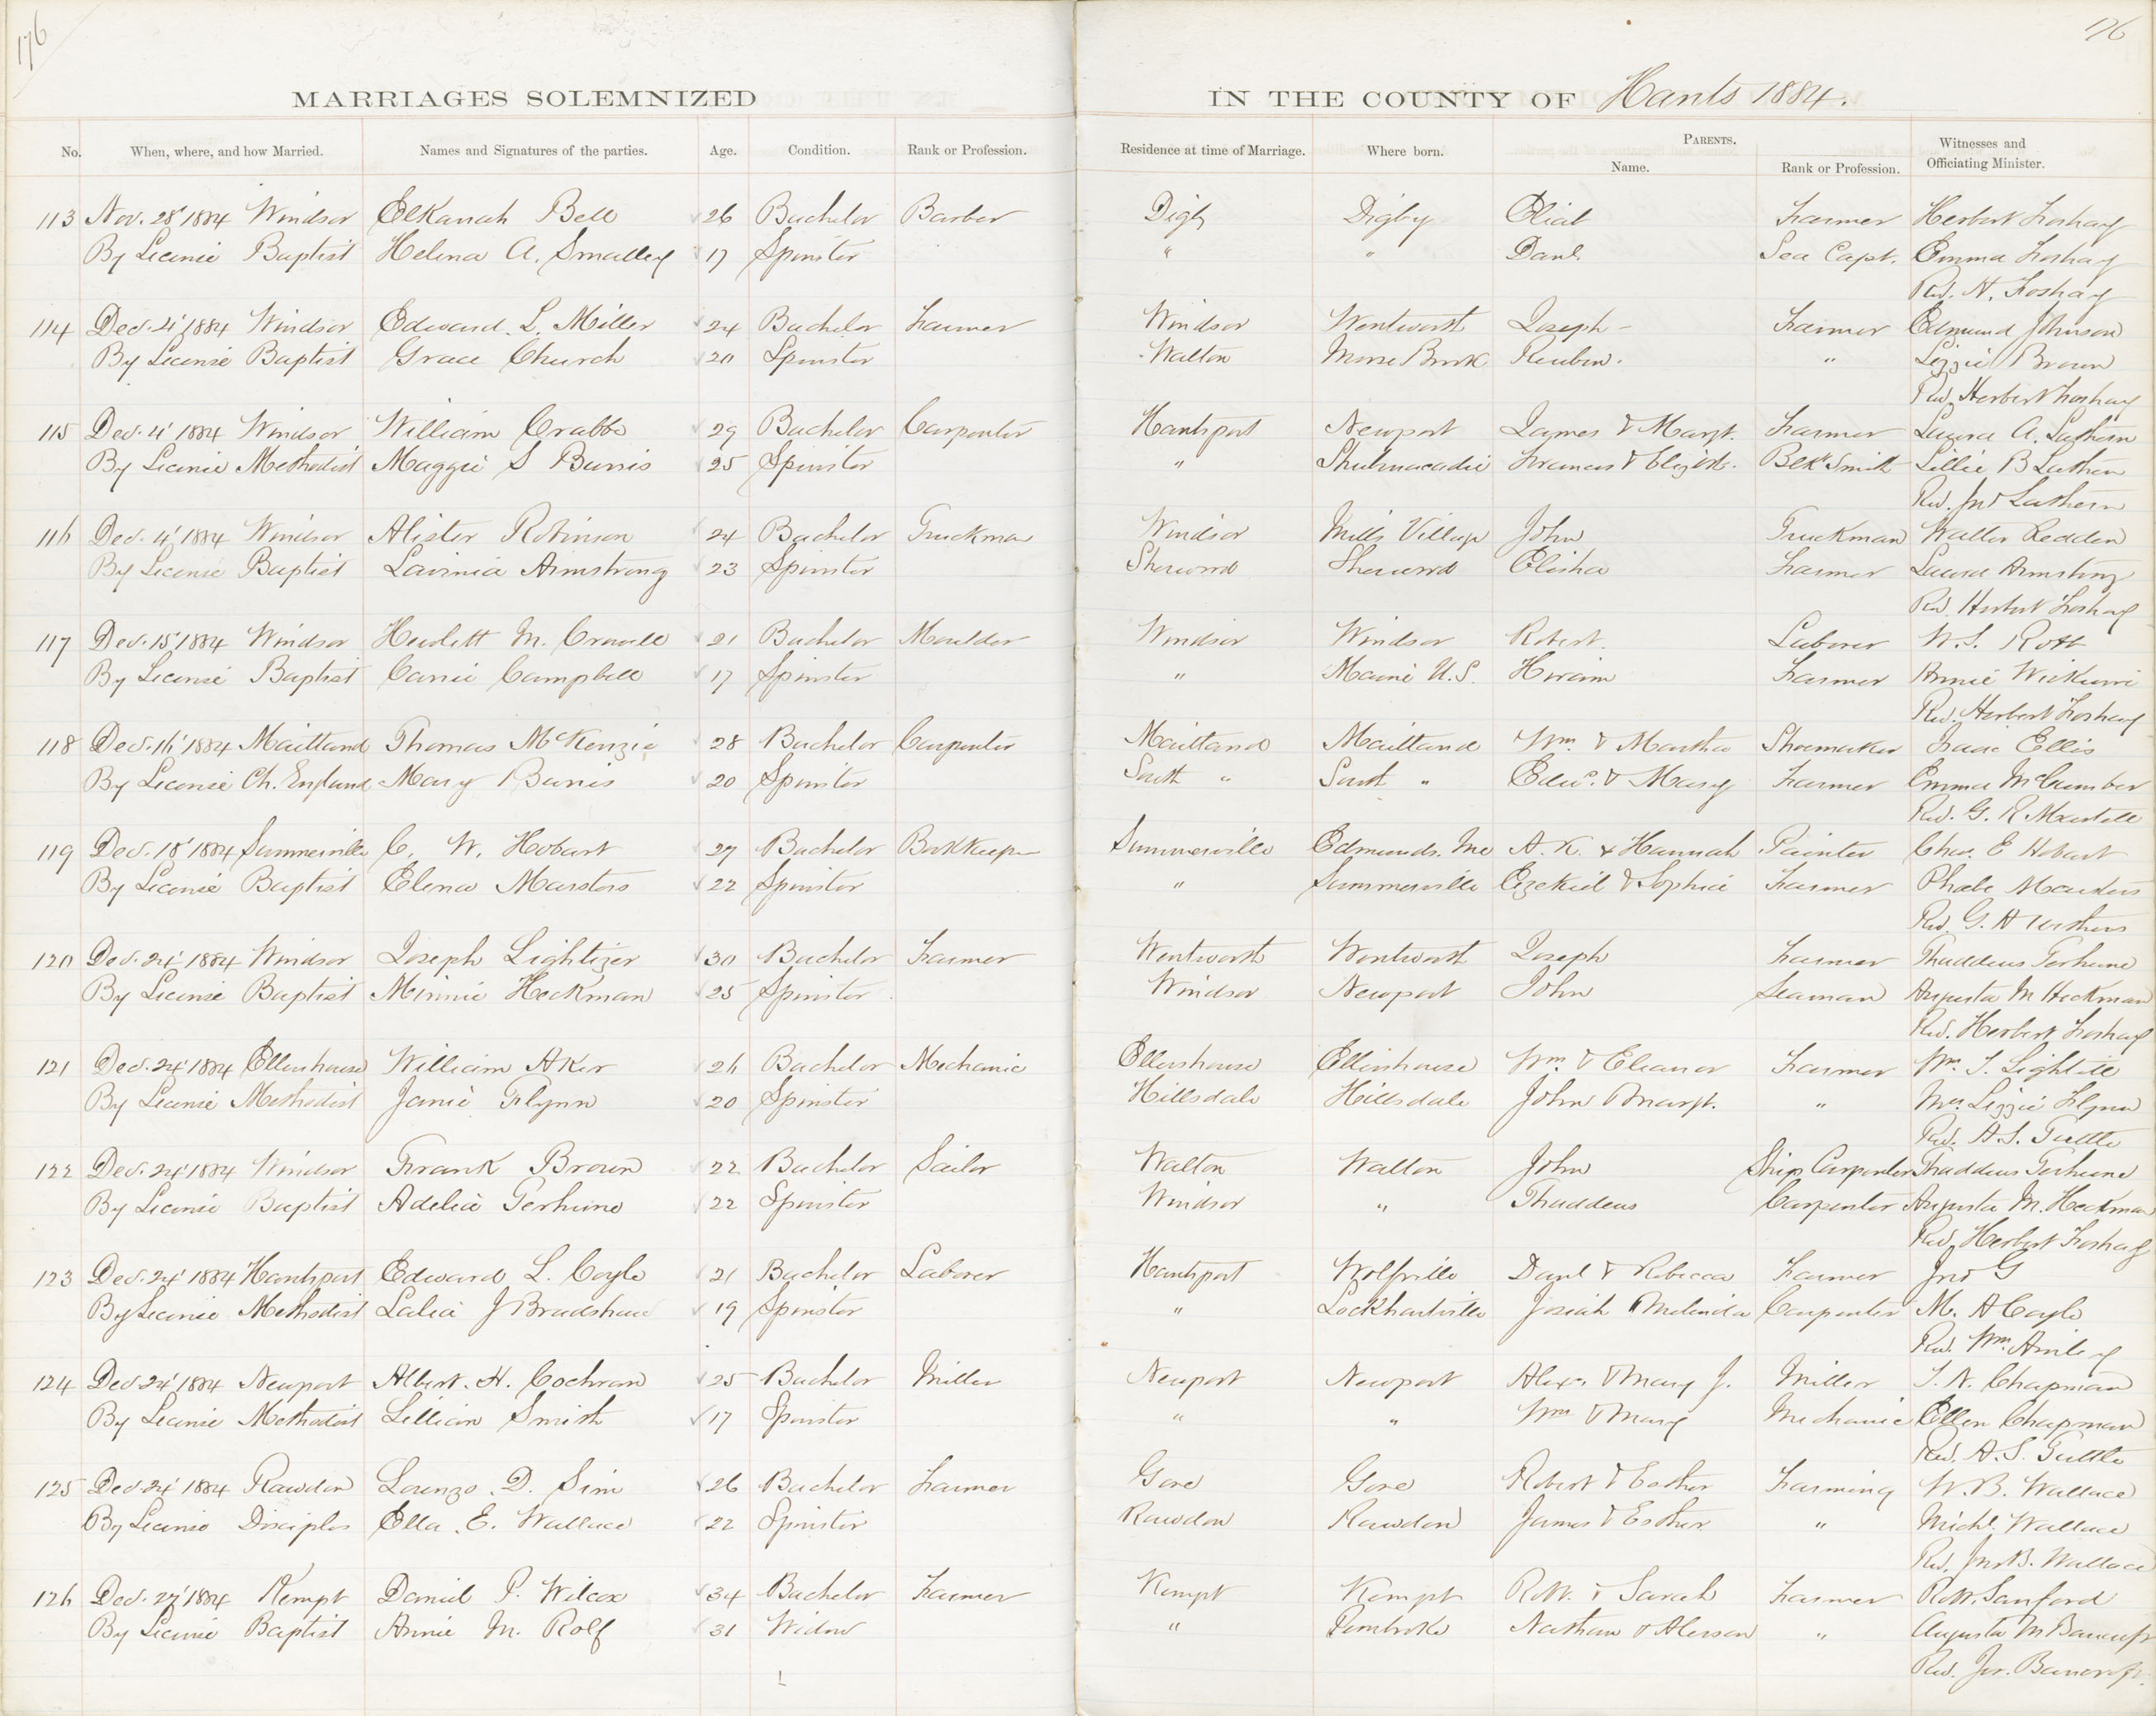 176
176
MARRIAGES SOLEMNIZED IN THE COUNTY OF Hants 1884.
No. When, where, and how Married. Names and Signatures of the parties. Age. Condition. Rank or Profession. Residence at time of Marriage. Where born. PARENTS. Name. Rank or Profession. Witnesses and Officiating Minister.
113 Nov. 28' 1884 Windsor Elkanah Bell 26 Bachelor Barber Digby Digby Eliab Farmer Herbert Foshay
By License Baptist Helena A. Smalley 17 Spinster " " Danl. Sea Capt. Emma Foshay
Rev. H. Foshay
114 Dec. 4' 1884 Windsor Edward L. Miller 24 Bachelor Farmer Windsor Wentworth Joseph Farmer Edmund Johnson
By License Baptist Grace Church 20 Spinster Walton Moose Brook Reuben. " Lizzie Brown
Rev. Herbert Foshay
115 Dec. 4' 1884 Windsor William Crabbe 29 Bachelor Carpenter Hantsport Newport James & Margt. Farmer Laura A. Lathern
By License Methodist Maggie S Burris 25 Spinster " Shubenacadie Francis & Elizbth. Blk Smith Lillie B Lathern
Rev. Jno Lathern
116 Dec. 4' 1884 Windsor Alister Robinson 24 Bachelor Truckman Windsor Mills Village John Truckman Walter Redden
By License Baptist Lavinia Armstrong 23 Spinster Sherwood Sherwood Elisha Farmer Laura Armstrong
Rev. Herbert Foshay
117 Dec. 15' 1884 Windsor Hewlett M. Crowell 21 Bachelor Moulder Windsor Windsor Robert. Laborer W. S.
By License Baptist Carrie Campbell 17 Spinster " Maine U.S. Hiram Farmer Annie
Rev. Herbert Foshay
118 Dec. 16' 1884 Maitland Thomas McKenzie 28 Bachelor Carpenter Maitland Maitland Wm. & Martha Shoemaker Isaac Ellis
By License Ch. England Mary Burris 20 Spinster South " South " Edwd. & Mary Farmer Emma McCumber
Rev. G. R. Martell
119 Dec. 18' 1884 Summerville C. W. Hobart 27 Bachelor Bookkeeper Summerville Edmunds. Me A. K. & Hannah Painter Chas. E Hobart
By License Baptist Elena Marsters 22 Spinster " Summerville Ezekiel & Sophia Farmer Phoebe Marsters
Rev. G. A Weathers
120 Dec. 24' 1884 Windsor Joseph Lightizer 30 Bachelor Farmer Wentworth Wentworth Joseph Farmer Thaddeus Terhune
By License Baptist Minnie Heckman 25 Spinster Windsor Newport John Seaman Augusta M Heckman
Rev. Herbert Foshay
121 Dec. 24' 1884 Ellershouse William Aker 26 Bachelor Mechanic Ellershouse Ellershouse Wm. & Eleanor Farmer Wm. T. Lightill
By License Methodist Janie Flynn 20 Spinster Hillsdale Hillsdale John & Margt. " Mrs. Lizzie Flynn
Rev. A. S. Tuttle
122 Dec. 24' 1884 Windsor Frank Brown 22 Bachelor Sailor Walton Walton John Ship Carpenter Thaddeus Terhune
By License Baptist Adelia Terhune 22 Spinster Windsor " Thaddeus Carpenter Augusta M. Heckman
Rev. Herbert Foshay
123 Dec. 24' 1884 Hantsport Edward L. Coyle 21 Bachelor Laborer Hantsport Wolfville Danl & Rebecca Farmer Jno G
By License Methodist Lalia J Bradshaw 19 Spinster " Lockhartville Josiah & Melinda Carpenter M. A Coyle
Rev. Wm. Ainley
124 Dec 24' 1884 Newport Albert. H. Cochran 25 Bachelor Miller Newport Newport Alexr. & Mary J. Miller T. N. Chapman
By License Methodist Lillian Smith 17 Spinster " " Wm & Mary Mechanic Ellen Chapman
Rev. A. S. Tuttle
125 Dec. 24' 1884 Rawdon Lorenzo. D. Sim 26 Bachelor Farmer Gore Gore Robert & Esther Farming W. B. Wallace
By License Disciples Ella. E. Wallace 22 Spinster Rawdon Rawdon James & Esther " Michl. Wallace
Rev. Jno B. Wallace
126 Dec. 27' 1884 Kempt Daniel P. Wilcox 34 Bachelor Farmer Kempt Kempt Robt. & Sarah Farmer Robt. Sanford
By License Baptist Annie M. Rolf 31 Widow " Pembroke Nathan & " Augusta M Bancroft
Rev. Jer. Bancroft.